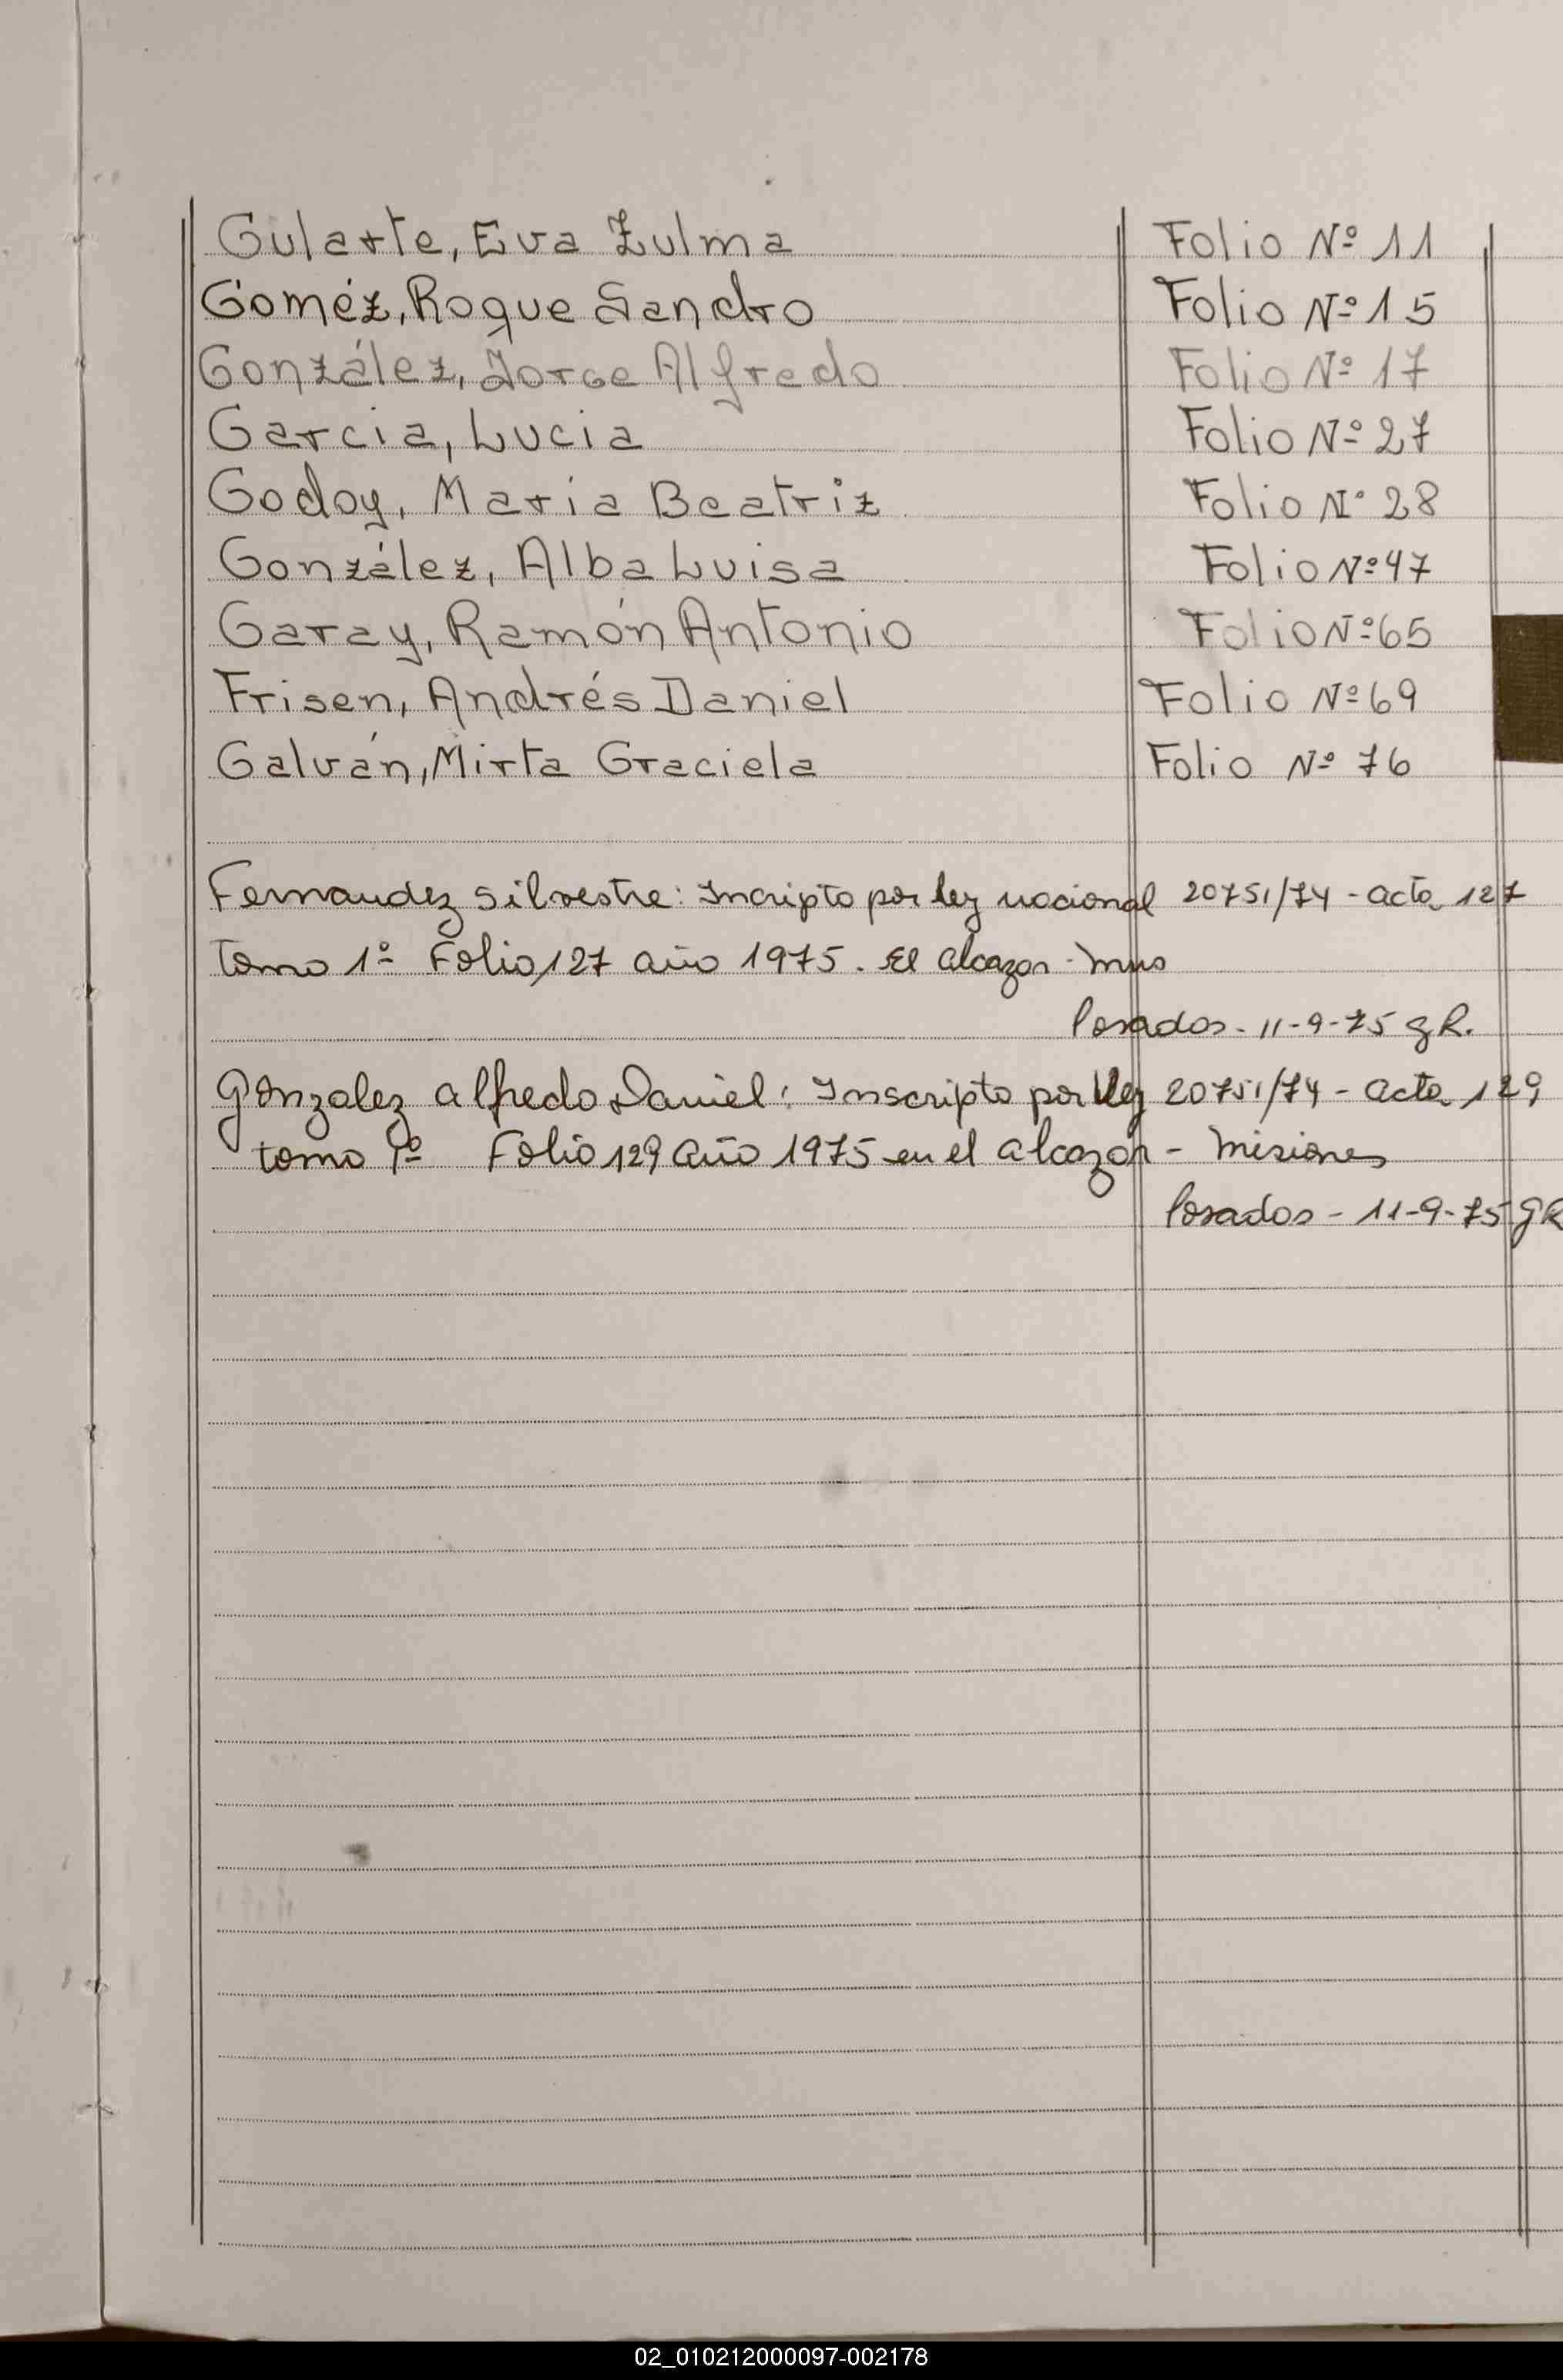 Gularte, Eva Zulma Folio Nº 11
Goméz, Roque Sandro Folio Nº 15
González, Jorge Alfredo Folio Nº 17
Garcia, Lucia Folio Nº 27
Godoy, María Beatriz Folio Nº 28
González, Alba Luisa Folio Nº 47
Garay, Ramón Antonio Folio Nº 65
Frisen, Andrés Daniel Folio Nº 69
Galván, Mirta Graciela Folio Nº 76
Fernandez Silvestre: Incripto por ley nacional 20751/74 - acta 127
tomo 1º Folio 127 año 1975. El alcazar - Mnes
Posadas - 11-9-75 gR.
Gonzalez Alfredo Daniel: Inscripto por ley 20751/74 - acta 129
tomo 1º Folio 129 año 1975 en el alcazar - Misiones
Posadas - 11-9-75 gR
02_010212000097-002178